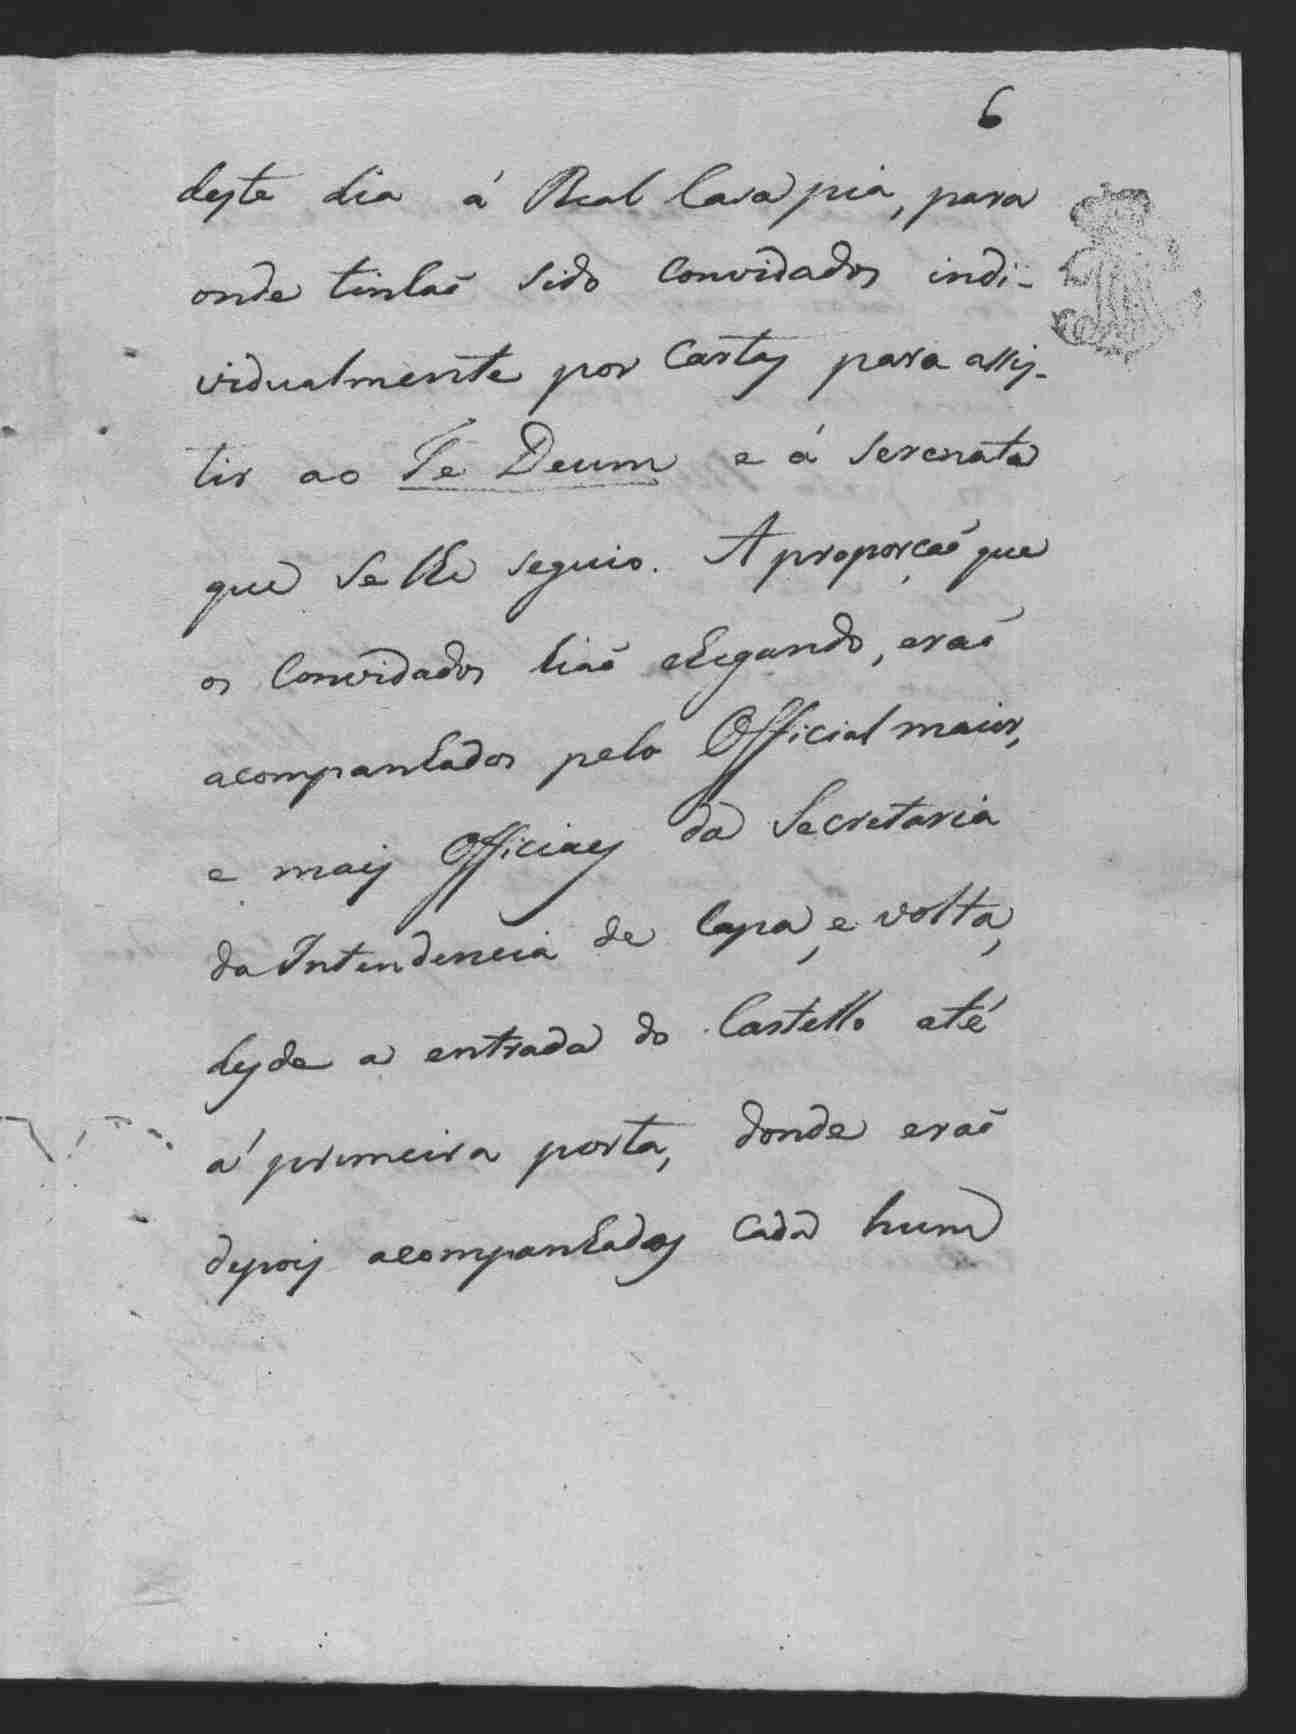 6
deste dia á Real Casa pia, para
onde tinhaõ sido Convidados indi-
vidualmente por Cartas para assis-
tir ao Te Deum e á serenata
que se lhe seguio. A proporçaõ que
os Convidados hiaõ chegando, eraõ
acompanhados pelo Official maior,
e mais Officiaes da Secretaria
da Intendencia de Capa, e volta,
desde a entrada do Castello até
á primeira porta, donde eraõ
depois acompanhados cada hum